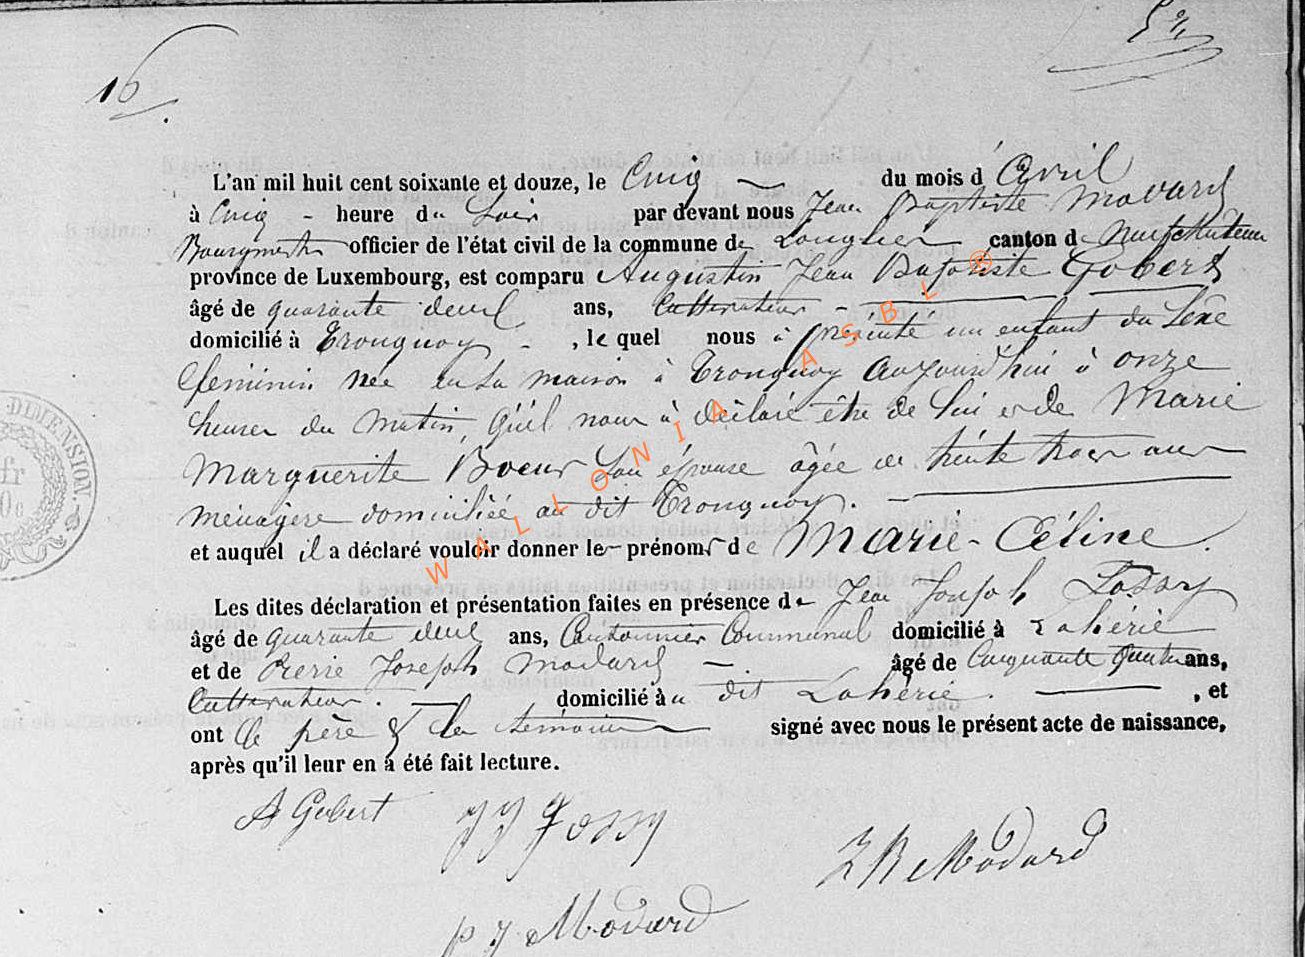 16
L'an mil huit cent soixante et douze, le Cinq du mois d'Avril
à Cinq heure du Soir par devant nous Jean Baptiste Modard
Bourgmestre officier de l'état civil de la commune de Longlier canton de Neufchateau
province de Luxembourg, est comparu Augustin Jean Baptiste Gobert
âgé de quarante deux ans, Cultivateur
domicilié à Tronquoy, le quel nous à présenté un enfant du Sexe
feminin née en sa maison à Tronquoy aujourd'hui à onze
heures du Matin, qu'il nous à déclaré être de lui et de Marie
Marguerite Boeur Son épouse âgée de trente trois ans
ménagère domiciliée au dit Tronquoy.
et auquel il a déclaré vouloir donner les prénoms de Marie-Céline.
Les dites déclaration et présentation faites en présence de Jean Joseph Fossy
âgé de quarante deux ans, Cantonnier Communal domicilié à Lahérie
et de Pierre Joseph Modard âgé de Cinquante quatre ans,
Cultivateur. domicilié à u dit Lahérie. , et
ont le père & les témoins signé avec nous le présent acte de naissance,
après qu'il leur en a été fait lecture.
A Gobert JJ Fossy
J B Modard
p J Modard
DIMENSION.
WALLONIA ASBL ®